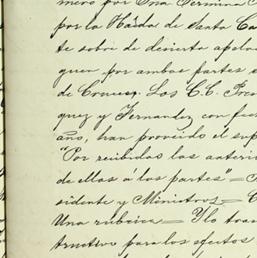 mero por Una Termina
por la Hácda de Santa Ca
te sobre de desierta apela
quea por ambas partes s
de Cruces. Los C.C. Fran
quez y Fernandez con fec
año, han proveido el sup
"Por recibidos las anteri
de ellas á las partes"=
sidente y Ministros=
Una rúbrica= Y lo tras
tructivo para los efectos